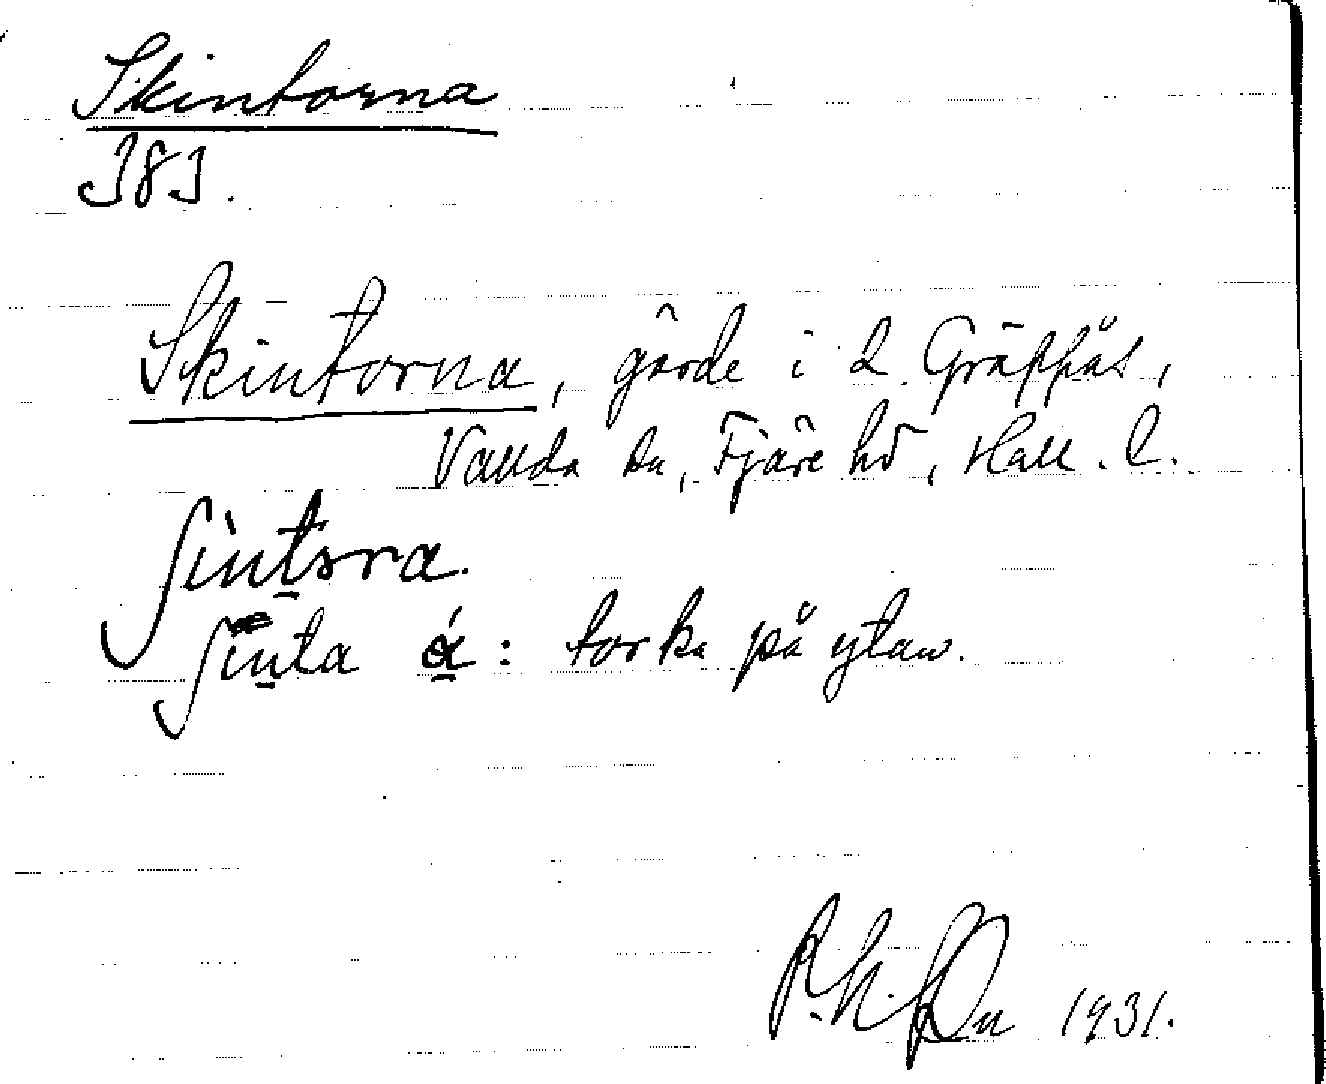 Skintorna
383.
Skintorna, gärde i 2 Gräppås,
Vallda sn, Fjäre hd, Hall. l.
ʃìntɔra.
ʃinta á: torka på ytan.
1931.